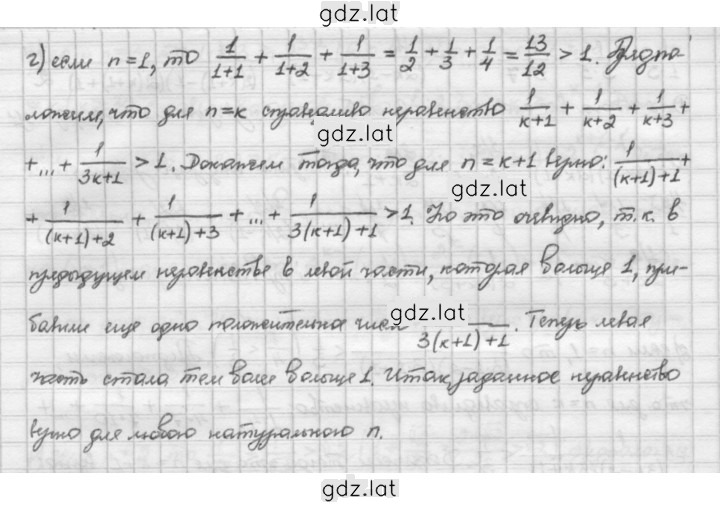 gdz.lat
г) если n=1, то 1/(1+1) + 1/(1+2) + 1/(1+3) = 1/2 + 1/3 + 1/4 = 13/12 > 1. Предпо-
ложим, что для n=k справедливо неравенство 1/(k+1) + 1/(k+2) + 1/(k+3) +
gdz.lat
+ ... + 1/(3k+1) > 1. Докажем тогда, что для n=k+1 верно: 1/((k+1)+1) +
gdz.lat
+ 1/((k+1)+2) + 1/((k+1)+3) + ... + 1/(3(k+1)+1) > 1. Но это очевидно, т.к. в
предыдущем неравенстве в левой части, которая больше 1, при-
gdz.lat
бавили еще одно положительное число 1/(3(k+1)+1). Теперь левая
часть стала тем более больше 1. Итак, заданное неравенство
верно для любого натурального n.
gdz.lat